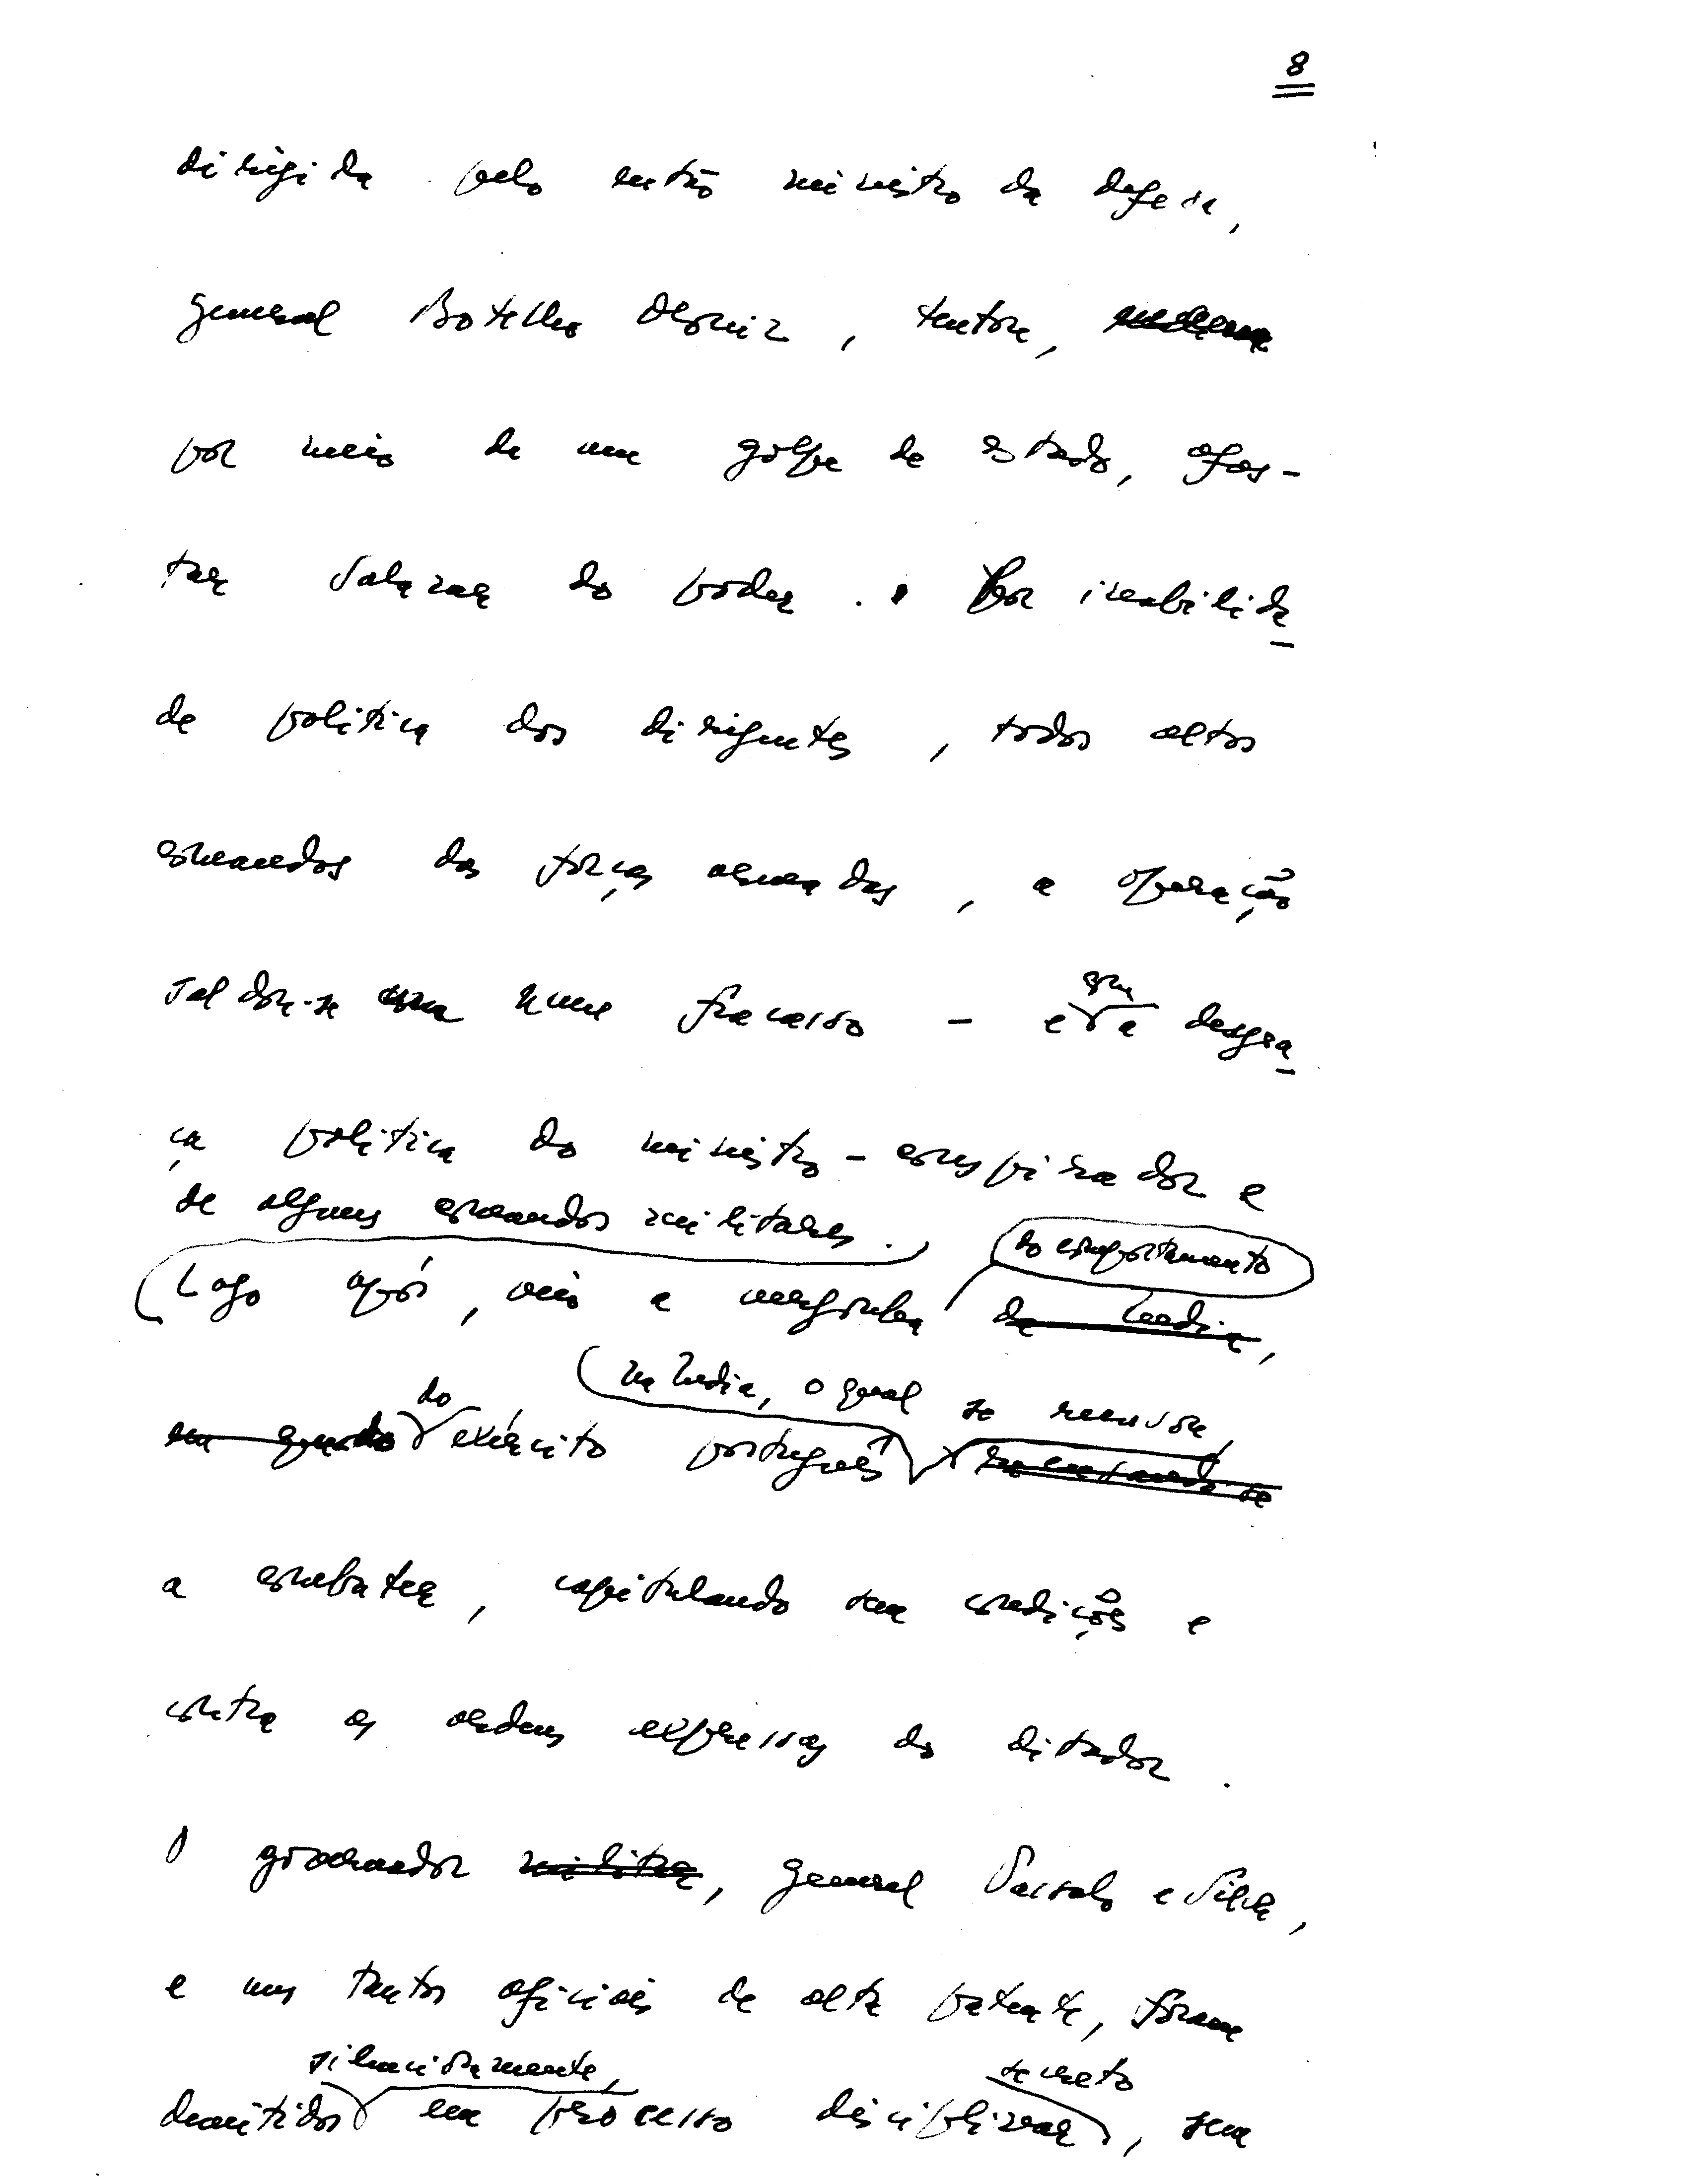 8
dirigida pelo então ministro da defesa,
general Botelho Moniz, tentou,
por meio de um golpe de estado, afas-
tar Salazar do poder. Por inabilida-
de politica dos dirigentes, todos altos
comandos das forças armadas, a operação
saldou-se num fracasso - e com a desgra-
ça politica do ministro-conspirador e
de alguns comandos militares.
do comportamento
Logo após, veio a vergonha da India,
na India, o qual se recusou,
do
em quando exército português recusando-se
a combater, capitulando sem condições e
contra as ordens expressas do ditador.
O governador militar, general Vassalo e Silva,
e uns tantos oficiais de alta patente, foram
silenciosamente, secreto
demitidos em processo disciplinar, sem